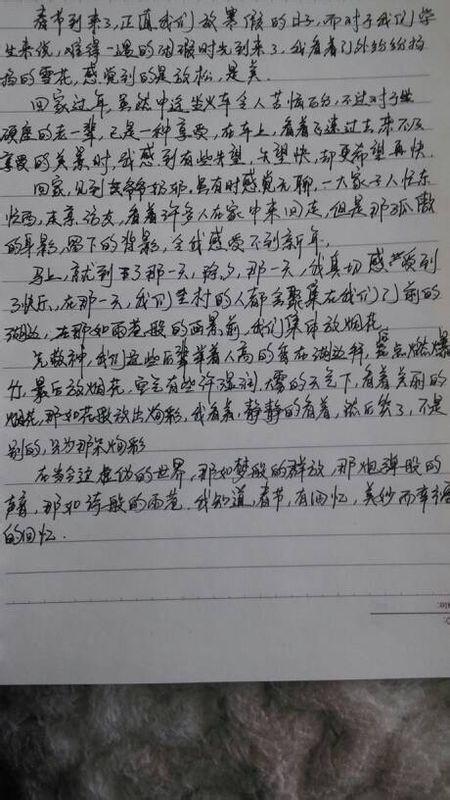 春节到来了,正值我们放寒假的日子,而对于我们学
生来说,难得一遇的闲暇时光到来了,我看着门外纷纷扬
扬的雪花,感觉到的是放松,是美.
回家过年,虽然中途坐火车令人苦恼百分,不过对于坐
硬座的老一辈,已是一种享受,在车上,看着飞速过去,来不及
享受的美景时,我感到有些失望,失望快,却更希望再快.
回家,见到爷爷奶奶,虽有时感觉无聊,一大家子人忙东
忙西,走亲访友,看着许多人在家中来回走,但是那孤傲
的身影,留下的背影,令我感受不到新年,
马上,就到了那一天,除夕,那一天,我真切感受到
了快乐,在那一天,我们全村的人都会聚集在我们门前的
湖边,在那如雨巷般的雨景前,我们集中放烟花.
先敬神,我们这些后辈举着人高的香在湖边拜,点燃爆
竹,最后放烟花,空气有些许湿润,大雾的天气下,看着美丽的
烟花,那如花般放出绚彩,我看着,静静的看着,然后笑了,不是
别的,只为那朵绚彩
在当今这虚伪的世界,那如梦般的群放,那炮弹般的
声音,那如诗般的雨巷.我知道,春节,有回忆,美妙而幸福
的回忆.